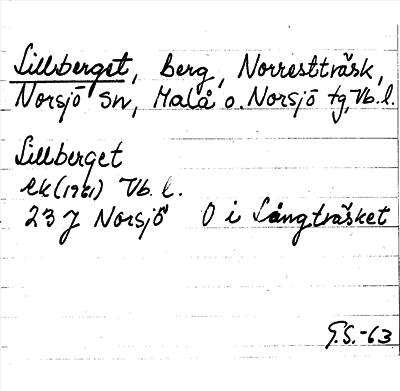 Lillberget, berg, Norrestträsk,
Norsjö sn, Malå o. Norsjö tg, Vb. l.
Lillberget
ek (1961) Vb. l.
23 J Norsjö O i Långträsket
G.S. -63